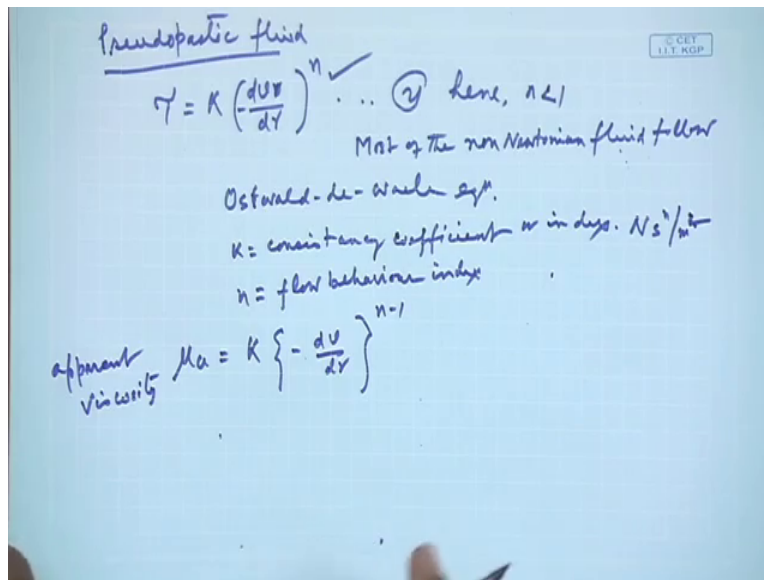 Pseudopastic fluid
© CET
I.I.T. KGP
τ = K (-dv/dr)^n ✓ ... (2) here, n<1
Most of the non Newtonian fluid follow
Ostwald-de-waele eqn.
K = consistancy coefficient or index. N s^n/m^2
n = flow behaviour index
apparent viscosity μa = K {- dv/dr}^n-1